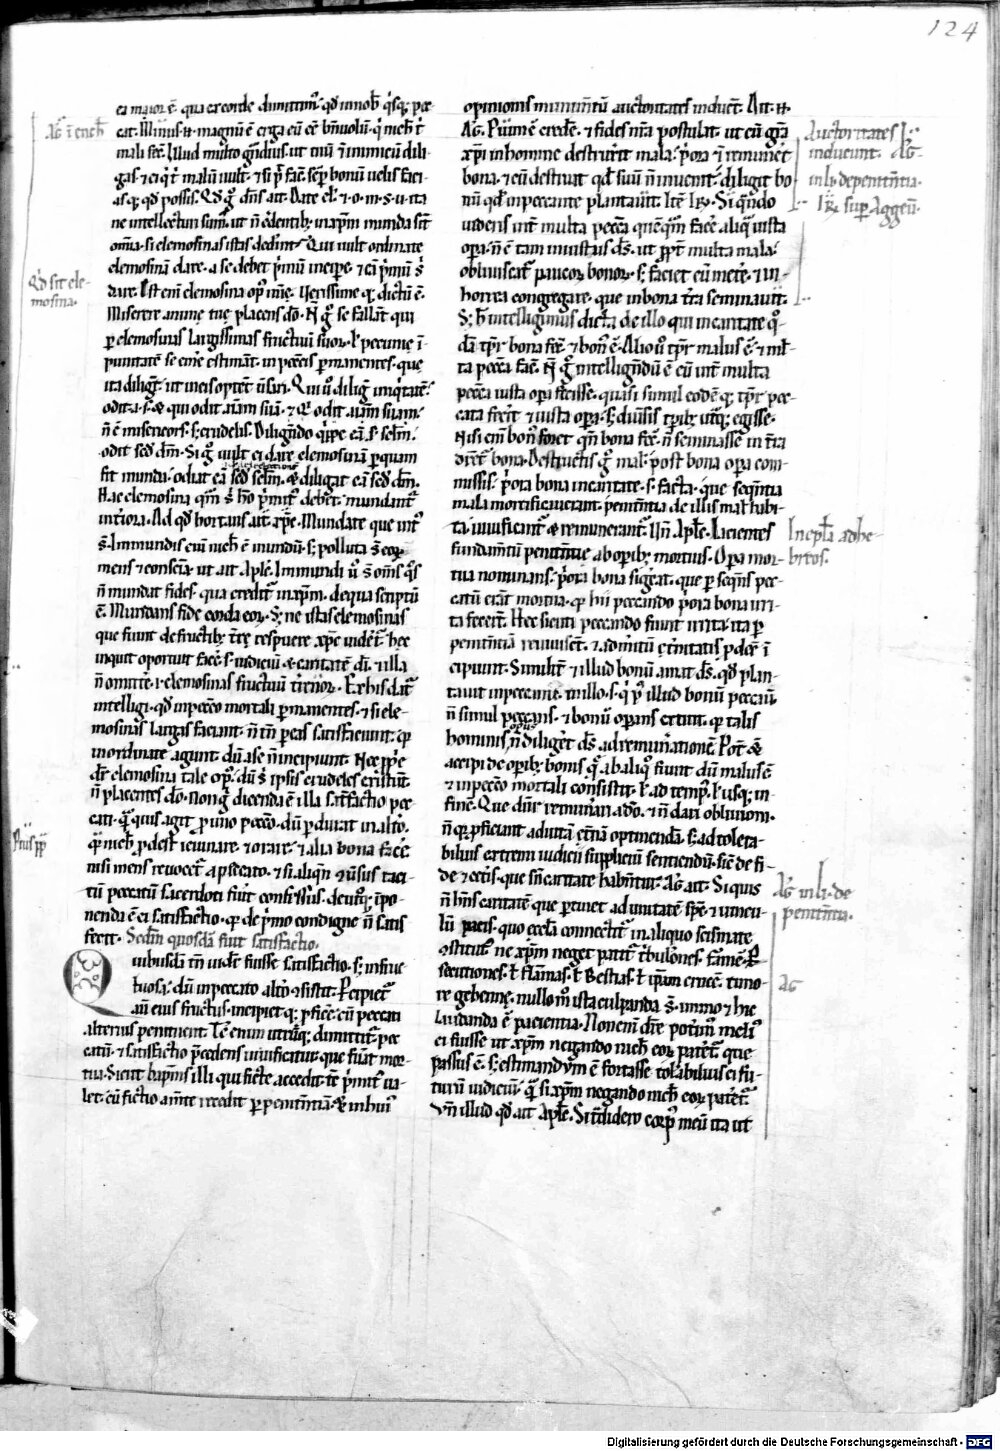 124
ea maior ē. qua ex corde dimittim᷒. qđ in nob̄ q̇sq; pec
cat. Minus .n. magnū ē erga eū eē bn̄uolū. q̇ nich̄ t̄
mali fec̄. Illud multo g̃ndius. ut tuū ī inimicū dili
gas. ⁊ ei q̇ t̄ malū uult. ⁊ si p̄t fac̄. sēp bonū uelis faci
as q; qđ possis.
ne intellectum sum̄. ut n̄ c̄dentib; in xp̄m munda sīnt
om̄ia. si elemosinas istas dederīnt. Qui uult ordinate
elemosinā dare. a se debet p̄mū incipe. ⁊ eā p̄mū s̄
dare. Est enī elemosina op᷒ mīe. Uerissime q; dictū ē.
Miserere anime tue placens dō. N̄ g̊ se fallāt qui
p elemosinas largissimas fructuū suor. ł pecunie ī
punitate se emē estimāt. in pccīs pmanentes. que
ita diligūt ut in eis optēt ūsari. Qui ū dilig̃ iniq̇tatē.
odit a. s. ⁊ qui odit aīam suā. ⁊ q̇ odit aīam suam.
n̄ ē misericors. s; crudelis. Diligēdo q̇ppe eā. s. sclm̄.
odit sc̄d dm̄. Si g̊ uult ei dare elemosinā p quam
fit munda. odiat eā sc̄d sclm̄. ⁊ diligat eā sc̄d dm̄.
Hac elemosina qm̄ s̄ hō p̄mit᷒ debet. mundant᷒
int̄iora. Ad qđ hortans ait xp̄c. Mundate que int᷒
s̄. Immundis enī nich̄ ē mundū. s; polluta s̄ eor
mens ⁊ conscīa. ut ait Apl̄s. Immundi ū s̄ om̄s q̇s
n̄ mundat fides. qua credit᷒ in xp̄m. de qua scriptū
ē. Mundans fide corda eor. S; ne istas elemosinas
que fiunt de fructib; tr̄e respuere xp̄c uideret᷒. hec
inquit oportuit facē. s. iudiciū ⁊ caritatē di. ⁊ illa
n̄ omittē. i. elemosinas fructuū t̄renor. Ex his dat᷒
intelligi. qđ in pccō mortali pmanentes. ⁊ si ele
mosinas largas faciant. n̄ tn̄ p eas satisfaciunt. qr
inordinate agunt. dū a se n̄ incipiunt. Nec pp̄e
dr̄ elemosina tale op᷒. dū s̄ ipsis crudeles existūt.
n̄ placentes dō. Non g̊ dicenda ē illa satisfactio pec
cati. q̄ quis agit p uno pccō. dū pdurat in alt̄o.
qr nich̄ pdest ieiunare. ⁊ orare. ⁊ alia bona facē.
nisi mens reuocet᷒ a pccato. ⁊ si aliqn̄ ⁊ūsus taci
tū peccatū sacerdoti fuit confessus. deutq; īpo
nenda ē ei satisfactio. qr de p̄mo condigne n̄ satis
fecit. Scdm̄ quosdā fuit satisfactio.
Quibusdā tn̄ uidet᷒ fuisse satisfactio. s; infruc
tuosa. dū in peccato alt̄o ⁊sistit. Pcipiet᷒
au᷒ eius fructus. incipiet q; pficē. cū peccati
alterius penituerit. Tc̄ enim utrūq; dimittit᷒ pec
catū. ⁊ satisfactio pcedens uiuificatur. que fuat mor
tua. Sicut baptism᷒ illi qui ficte accedit. tc̄ p̄mit᷒ ua
let. cū fictio a mente recedit p penitentiā. ⁊ in hui᷒
opinionis munim̄tū auctoritates inducūt. Ait .n.
Aḡ. Piū ē credē. ⁊ fides nr̄a postulat. ut cū gr̄a
xp̄i in homine destruxerit mala. p̄ora ⁊ remunēt
bona. ⁊ cū destruit qđ suū n̄ inuenit. diligit bo
nū qđ in peccante plantauit. Itē Ier. Si q̄ndo
uideris int̄ multa pccā quēq̄m facē aliq̄ iusta
opa. n̄ ē tam iniustus ds̄. ut ppt̄ multa mala
obliuiscat᷒ paucor bonor. s; faciet eū metē. ⁊ in
horrea congregare. que in bona tr̄a seminauit.
S; h̄ intelligimus dicta de illo qui in caritate q̊
dā tpr̄ bona fec̄. ⁊ bon᷒ ē. Alio ū tpr̄ malus ē. ⁊ ml̄
ta pccā fac̄. N̄ g̊ intellign̄dū ē eū int̄ multa
pccā iusta opa fecisse. quasi simul eodē q; tpr̄ pec
cata fecīt ⁊ iusta opa. s; diūsis tp̄rib; utq; egisse.
Nisi enī bon᷒ foret qn̄ bona fec̄. n̄ seminasse in tr̄a
diceret᷒ bona. Destructis g̊ malis post bona opa com
missis. p̄ora bona in caritate .s. facta. que sequentia
mala mortificauerant. penitentia de illis mal᷒ habi
ta. uiuificant᷒ ⁊ remunerant᷒. Un̄ Apl̄s. Iacientes
fundam̄tū penitentie ab opib; mortuis. Opa mor
tua nominans. p̄ora bona sig̊ificat. que p seqn̄s pec
catū erāt mortua. qr hii peccando p̄ora bona irri
ta fecert̄. Hec sicuti peccando fiunt irrita. ita p
penitentiā reuiuiscunt. ⁊ ad meritū et̄nitatis pdē ī
cipiunt. Similit̄ ⁊ illud bonū amat ds̄. qđ plan
tauit in peccante. in illo .s. q̇ p᷒ illud bonū peccauit.
n̄ simul peccans. ⁊ bonū opans extitit. qr talis
hominis opus n̄ diligēt ds̄ ad remunerationē. Pōt ⁊
accipi de opib; bonis. q̄ ab aliq̊ fiunt dū malus ē
⁊ in pccō mortali consistit. ł ad temp᷒. ł usq; in
finē. Que dn̄r remunerari a dō. ⁊ n̄ dari obliuioni.
n̄ qr pficiant ad uitā et̄nā optinendā. s; ad tolera
bilius extremi iudicii suppliciū sentiendū. sic̄ de fi
de ⁊ cet̄is. que sn̄ caritate habn̄tur Aḡ. ait. Si quis
n̄ hn̄s caritatē que ptinet ad unitatē sp̄c. ⁊ uincu
lū pacis. quo eccl̄ia connectit᷒. in aliquo scismate
⁊stitut᷒. ne xp̄m neget patit᷒ t̄bulones. famē. p
secutiones. ł flāmas. ł bestias. ł ip̄am crucē. timo
re gehenne. nullo m᷒ ista culpanda s̄. immo ⁊ hic
laudanda ē pacientia. Non enī dr̄e potim᷒ meli᷒
ei fuisse ut xp̄m negando nich̄ eor patet᷒. que
passus ē. s; estimandum ē fortasse tol̄abilius ei fu
turū iudiciū. q̄ si xp̄m negando nich̄ eor patet᷒.
Un̄ illud qđ ait Apl̄s. Si tradidero corp᷒ meū ita ut
Aḡ. ī ench̄
Qđ sit ele
mosina.
Auctoritates
inducunt. Aḡ.
in li. de penitn̄tia.
Ier. sup Aggeū.
In epl̄a ad he
breos.
Aḡ. in li. de
penitn̄tia.
AG
Digitalisierung gefördert durch die Deutsche Forschungsgemeinschaft - DFG